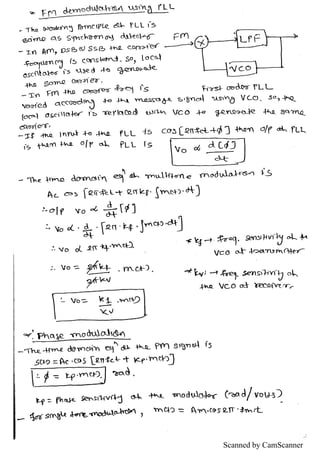 * FM demodulation using PLL
- The working Principle of PLL is
same as Synchronous detector
- In AM, DSB & SSB the carrier
frequency is constant. so, local
oscillator is used to generate
the same carrier.
FM
X
LPF
VCO
First order PLL
- In FM the carrier freq is
varied according to the message signal using VCO. so, the
local oscillator is replaced with VCO to generate the same
carrier.
- If the input to the PLL is cos[2πfct+φ] then o/p of PLL
is then the o/p of PLL is Vo α d[φ]/dt
- The time domain eqn of multitone modulation is
Ac cos [2πfct + 2πkf ∫m(t).dt]
∴ o/p Vo α d/dt [φ]
∴ Vo α d/dt [2π.kf.∫m(t).dt]
∴ Vo α 2π kf.m(t)
* kf → freq. sensitivity of the
VCO at transmitter
∴ Vo = 2πkf/2πkv . m(t).
* kv → freq. sensitivity of
the VCO at receiver.
∴ Vo = kf/kv .m(t)
* Phase modulation
- The time domain eqn of the PM signal is
s(t) = Ac.cos [2πfct + kp.m(t)]
∴ φ = kp.m(t). rad.
kp = Phase sensitivity of the modulator (rad/volts)
- for single tone modulation, m(t) = Am.cos2π.fmt
Scanned by CamScanner